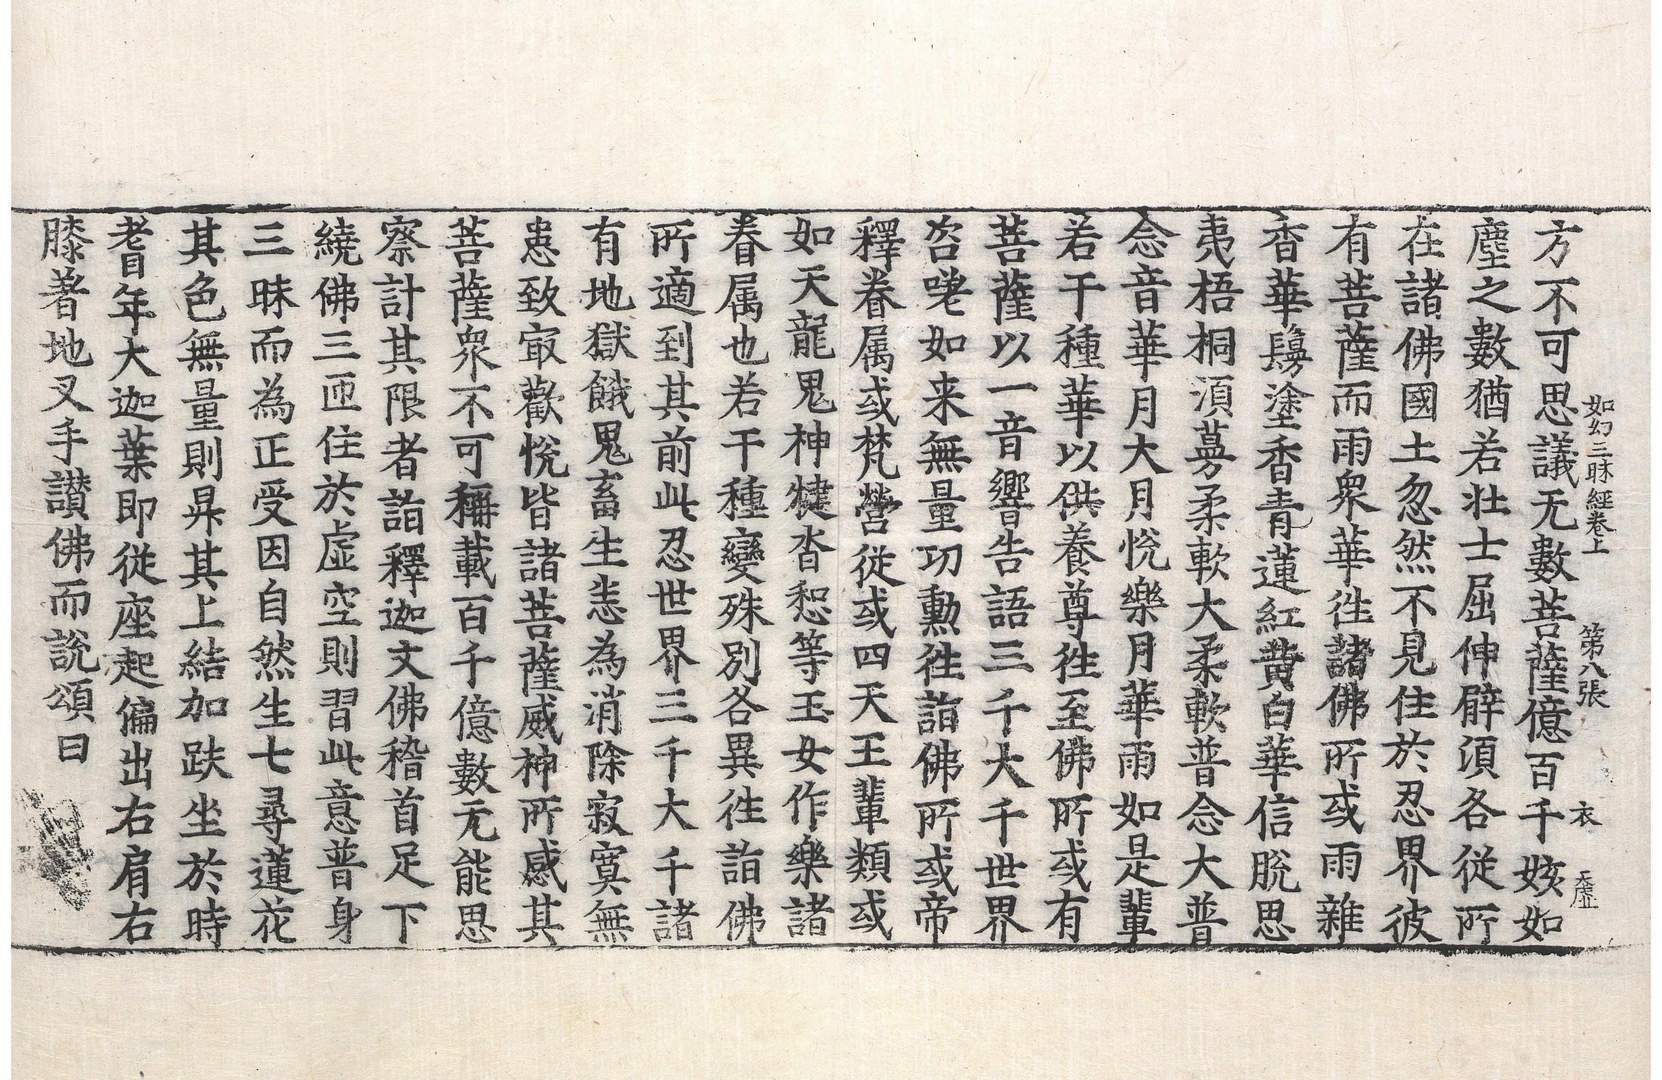 如幻三昧經卷上　第八張　衣　虛
方不可思議无數菩薩億百千姟如
塵之數猶若壯士屈伸臂湏各從所
在諸佛國土忽然不見住於忍界彼
有菩薩而雨衆華徃諸佛所或雨雜
香華鬘塗香青蓮紅黄白華信脫思
夷梧桐湏蔓柔軟大柔軟普念大普
念音華月大月悅樂月華雨如是輩
若干種華以供養尊徃至佛所或有
菩薩以一音響告語三千大千世界
咨嗟如来無量功勳徃詣佛所或帝
釋眷属或梵營従或四天王輩類或
如天龍鬼神揵沓惒等玉女作樂諸
眷属也若干種變殊別各異徃詣佛
所適到其前此忍世界三千大千諸
有地獄餓鬼畜生悉為消除寂寞無
患致㝡歡悅皆諸菩薩威神所感其
菩薩衆不可稱載百千億數无能思
察計其限者詣釋迦文佛稽首足下
繞佛三匝住於虛空則習此意普身
三昧而為正受因自然生七尋蓮花
其色無量則昇其上結加趺坐於時
耆年大迦葉即從座起偏出右肩右
膝著地叉手讃佛而說頌曰